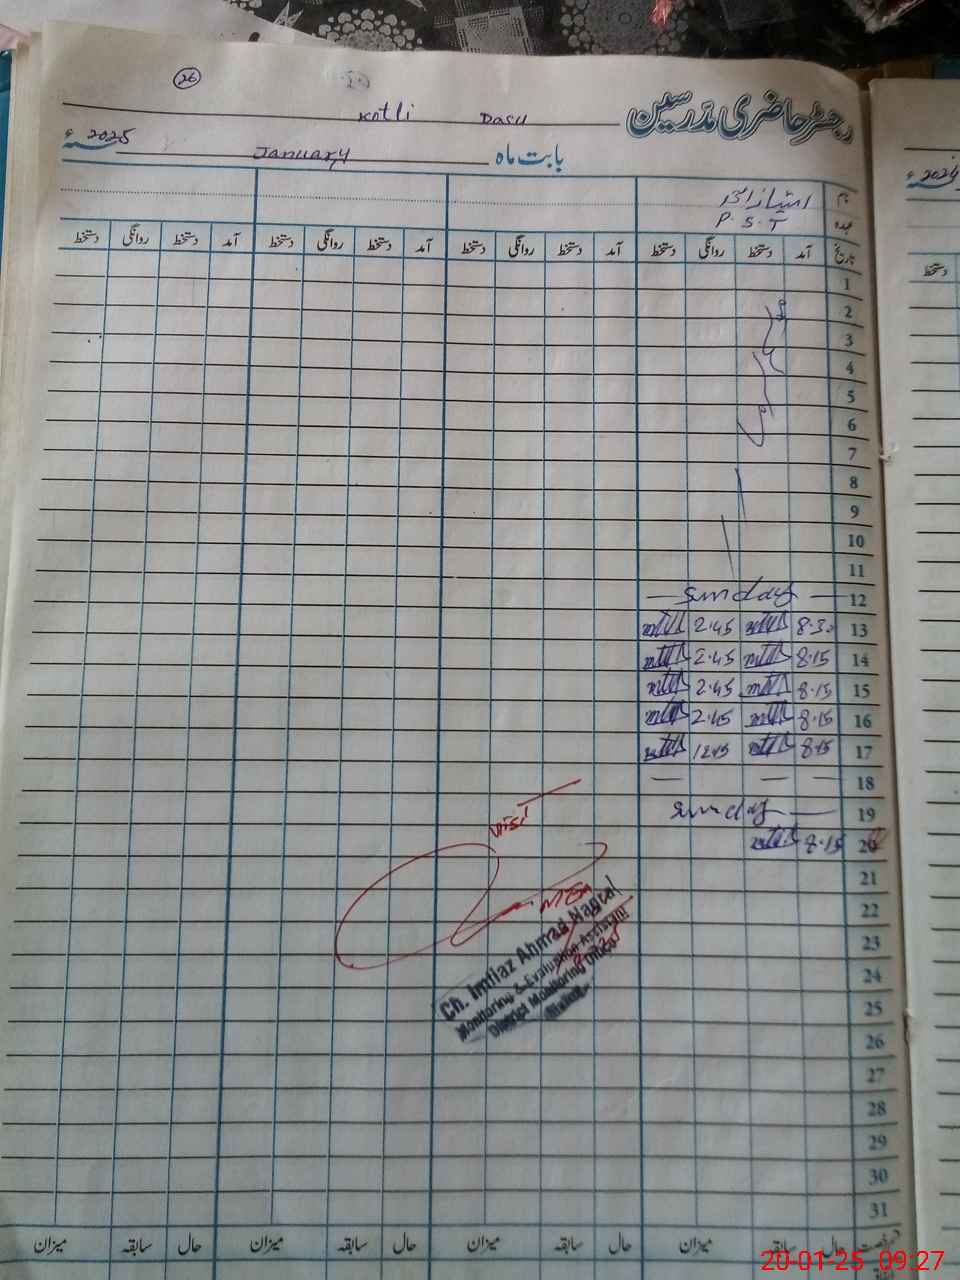 26
رجسٹر حاضری مدرسین Kotli Dasu
بابت ماہ January 2025ء
نام امتیاز احمد
عہدہ P.S.T
تاریخ آمد دستخط روانگی دستخط آمد دستخط روانگی دستخط آمد دستخط روانگی دستخط آمد دستخط روانگی دستخط
1
2
3
4
5
6
7
8
9
10
11
12 — Sunday —
13 8.30 2.45
14 8.15 2.45
15 8.15 2.45
16 8.15 2.45
17 8.15 1245
18 — — —
19 Sunday —
20 8.15
21
22
23
24
25
26
27
28
29
30
31
visit
MEA
Ch. Imtiaz Ahmad Nagral
Monitoring & Evaluation Assistant
District Monitoring Office
حال سابقہ میزان حال سابقہ میزان حال سابقہ میزان حال سابقہ میزان
2024ء
دستخط
20-01-25 09:27